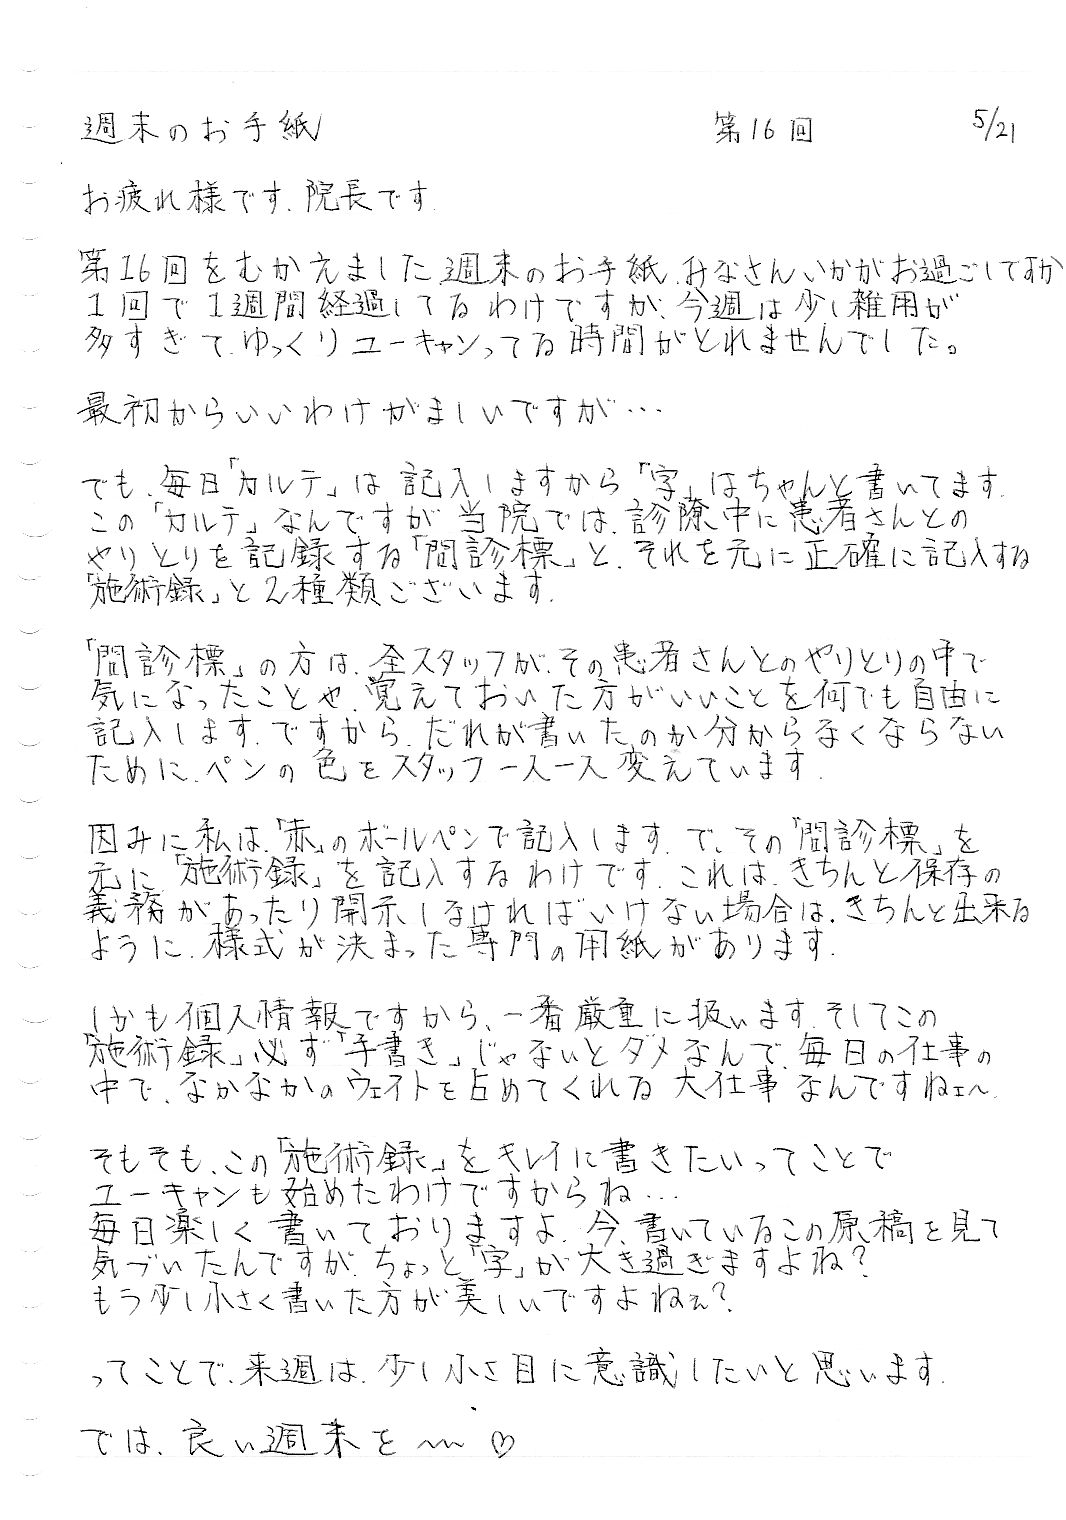 週末のお手紙 第16回 5/21
お疲れ様です、院長です。
第16回をむかえました週末のお手紙、みなさんいかがお過ごしですか
1回で1週間経過してるわけですが、今週は少し雑用が
多すぎて、ゆっくりユーキャンってる時間がとれませんでした。
最初からいいわけがましいですが…
でも、毎日「カルテ」は記入しますから「字」はちゃんと書いてます。
この「カルテ」なんですが当院では、診療中に患者さんとの
やりとりを記録する「問診標」と、それを元に正確に記入する
「施術録」と2種類ございます。
「問診標」の方は、全スタッフが、その患者さんとのやりとりの中で
気になったことや、覚えておいた方がいいことを何でも自由に
記入します。ですから、だれが書いたのか分からなくならない
ために、ペンの色をスタッフ一人一人変えています。
因みに私は、「赤」のボールペンで記入します。で、その「問診標」を
元に、「施術録」を記入するわけです。これは、きちんと保存の
義務があったり開示しなければいけない場合は、きちんと出来る
ように、様式が決まった専門の用紙があります。
しかも個人情報ですから、一番厳重に扱います。そしてこの
「施術録」必ず「手書き」じゃないとダメなんで、毎日の仕事の
中で、なかなかのウェイトを占めてくれる大仕事なんですねェ〜。
そもそも、この「施術録」をキレイに書きたいってことで
ユーキャンも始めたわけですからね…
毎日楽しく書いておりますよ。今、書いているこの原稿を見て
気づいたんですが、ちょっと「字」が大き過ぎますよね?
もう少し小さく書いた方が美しいですよねぇ?
ってことで、来週は、少し小さ目に意識したいと思います。
では、良い週末を〜〜♡